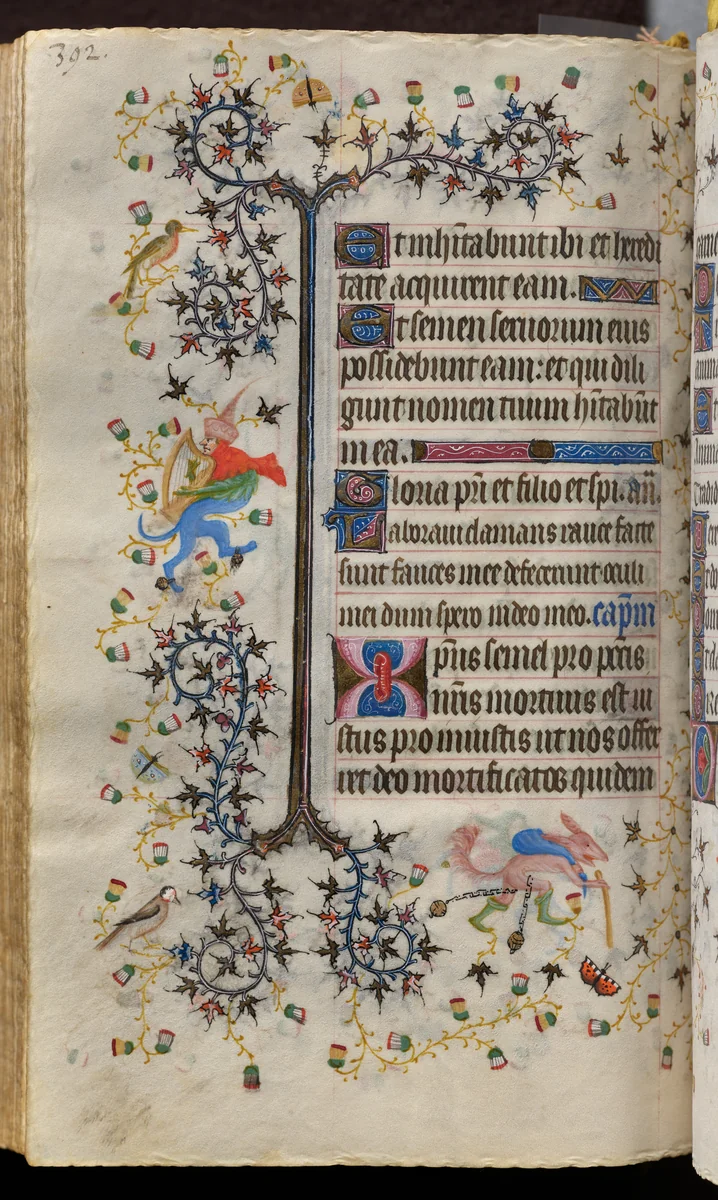 392.
Et inh̄itabunt ibi et heredi
tate acquirent eam.
Et semen seruorum eius
possidebunt eam: et qui dili
gunt nomen tuum h̄itabūt
in ea.
Gloria pr̄i et filio et spi. an̄.
Laboraui clamans rauce facte
sunt fauces mee defecerunt oculi
mei dum spero in deo meo. cap̄m
Xp̄us semel pro pctis
nr̄is mortuus est iu
stus pro iniustis ut nos offer
ret deo mortificatos quidem